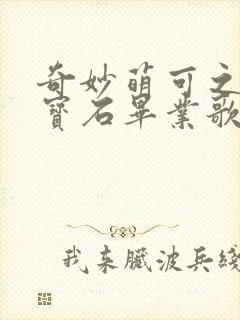 奇妙萌可之
寶石畢業歌
我来臟波兵綫